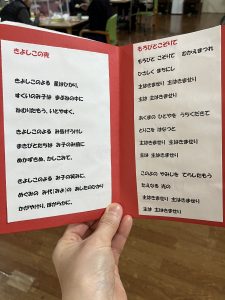 きよしこの夜
きよしこのよる 星はひかり、
すくいのみ子は まぶねの中に
ねむりたもう、いとやすく。
きよしこのよる み告げうけし
まきびとたちは み子のみ前に
ぬかずきぬ、かしこみて。
きよしこのよる み子の笑みに、
めぐみの み代(みよ)の あしたのひかり
かがやけり、ほがらかに。
もろびとこぞりて
もろびと こぞりて むかえまつれ
ひさしく まちにし
主はきませり 主はきませり
主は 主はきませり
あくまの ひとやを うちくだきて
とりこを はなつと
主はきませり 主はきませり
主は 主はきませり
このよの やみじを てらしたもう
たえなる 光の
主はきませり 主はきませり
主は 主はきませり